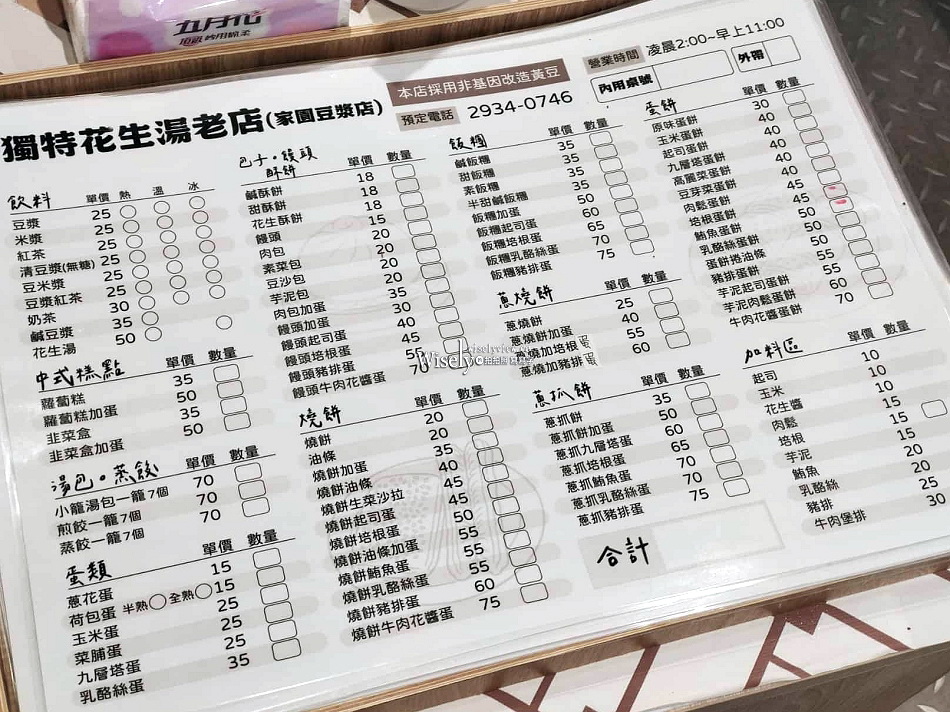 九月花
頂級 妙用綿柔
獨特花生湯老店(家園豆漿店)
本店採用非基因改造黃豆
預定電話 2934-0746
營業時間 凌晨2:00~早上11:00
內用桌號 外帶
飲料 單價 熱 溫 冰
豆漿 25
米漿 25
紅茶 25
清豆漿(無糖) 25
豆米漿 25
豆漿紅茶 25
奶茶 30
鹹豆漿 35
花生湯 50
中式糕點 單價 數量
蘿蔔糕 35
蘿蔔糕加蛋 50
韭菜盒 35
韭菜盒加蛋 50
湯包。蒸餃 單價 數量
小籠湯包一籠7個 70
煎餃一籠7個 70
蒸餃一籠7個 70
蛋類 單價 數量
蔥花蛋 15
荷包蛋 半熟 全熟 15
玉米蛋 25
菜脯蛋 25
九層塔蛋 25
乳酪絲蛋 35
包子。饅頭
酥餅 單價 數量
鹹酥餅 18
甜酥餅 18
花生酥餅 18
饅頭 15
肉包 20
素菜包 20
豆沙包 20
芋泥包 20
肉包加蛋 35
饅頭加蛋 30
饅頭起司蛋 40
饅頭培根蛋 45
饅頭豬排蛋 55
饅頭牛肉花醬蛋 70
燒餅 單價 數量
燒餅 20
油條 20
燒餅加蛋 35
燒餅油條 40
燒餅生菜沙拉 45
燒餅起司蛋 45
燒餅培根蛋 50
燒餅油條加蛋 55
燒餅鮪魚蛋 55
燒餅乳酪絲蛋 55
燒餅豬排蛋 60
燒餅牛肉花醬蛋 75
飯糰 單價 數量
鹹飯糰 35
甜飯糰 35
素飯糰 35
半甜鹹飯糰 35
飯糰加蛋 50
飯糰起司蛋 60
飯糰培根蛋 65
飯糰乳酪絲蛋
飯糰豬排蛋 75
蔥燒餅 單價 數量
蔥燒餅 25
蔥燒餅加蛋 40
蔥燒加培根蛋 55
蔥燒加豬排蛋 60
蔥抓餅 單價 數量
蔥抓餅 35
蔥抓餅加蛋 50
蔥抓九層塔蛋 60
蔥抓培根蛋 65
蔥抓鮪魚蛋 70
蔥抓乳酪絲蛋 70
蔥抓豬排蛋 75
合計
蛋餅 單價 數量
原味蛋餅 30
玉米蛋餅 40
起司蛋餅 40
九層塔蛋餅 40
高麗菜蛋餅 40
豆芽菜蛋餅 40
肉鬆蛋餅 45
培根蛋餅 45
鮪魚蛋餅 50
乳酪絲蛋餅 50
蛋餅捲油條 55
豬排蛋餅 55
芋泥起司蛋餅 55
芋泥肉鬆蛋餅 60
牛肉花醬蛋餅 70
加料區 單價 數量
起司 10
玉米 10
花生醬 10
肉鬆 15
培根 15
芋泥 15
鮪魚 20
乳酪絲 20
豬排 25
牛肉堡排 30
Wisely